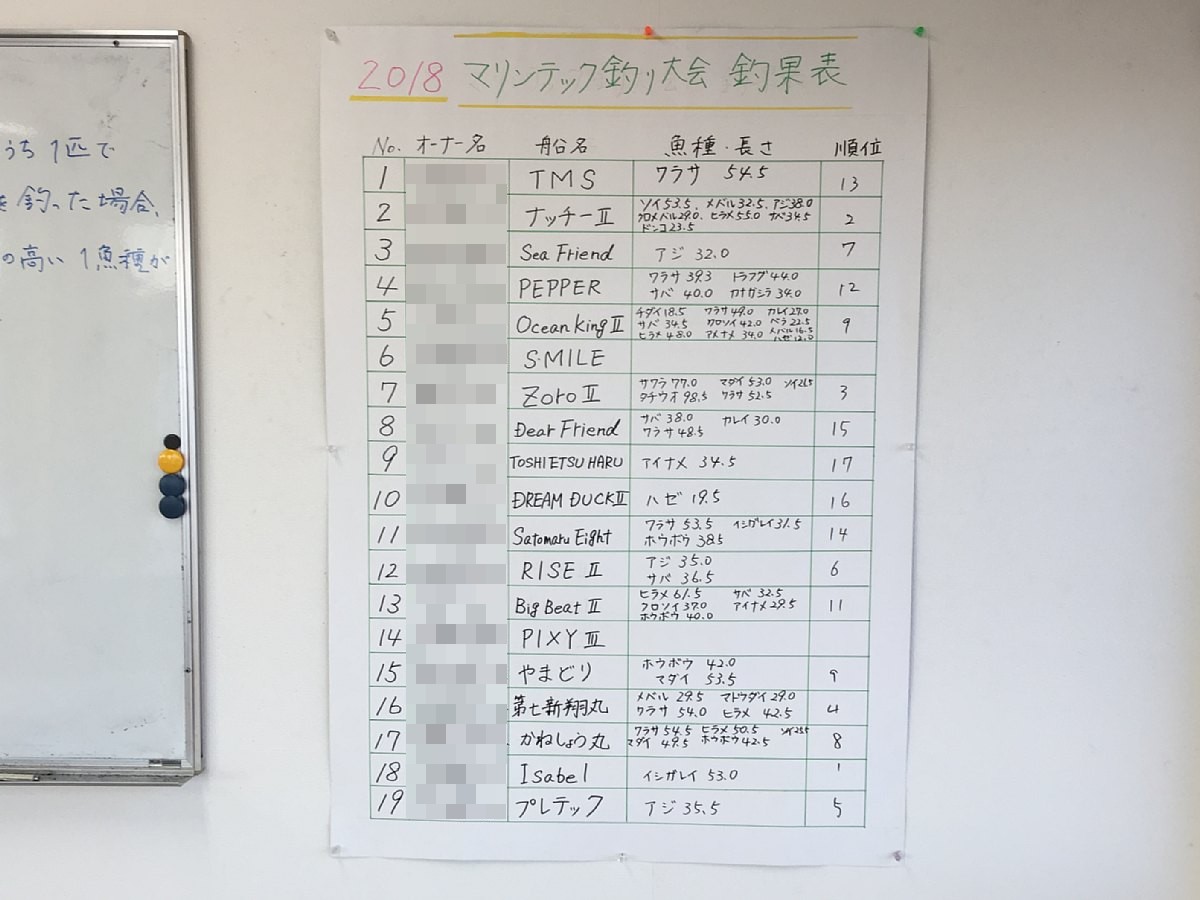 うち1匹で
釣った場合、
の高い1魚種が
2018 マリンテック釣り大会 釣果表
No. オーナー名 船舶名 魚種・長さ 順位
1 TMS ワラサ 54.5 13
2 ナッチーⅡ ソイ53.5. メバル32.5. アジ38.0
クロメバル29.0. ヒラメ55.0 サバ34.5 2
ドンコ23.5
3 Sea Friend アジ 32.0 7
4 PEPPER ワラサ 39.3 トラフグ44.0 12
サバ 40.0 カナガシラ 34.0
5 Ocean King Ⅱ チダイ18.5 ワラサ49.0 カレイ27.0 9
サバ 34.5 クロソイ42.0 ベラ 22.5
ヒラメ 48.0 アイナメ 34.0 メバル16.5
ハゼ12.0
6 S・MILE
7 Zoro Ⅱ サワラ 77.0 マダイ 53.0 ソイ 3
タチウオ 98.5 ワラサ 52.5
8 Dear Friend サバ 38.0 カレイ 30.0 15
ワラサ 48.5
9 TOSHIETSU HARU アイナメ 34.5 17
10 DREAM DUCKⅡ ハゼ 19.5 16
11 Satomaru Eight ワラサ 53.5 イシガレイ31.5 14
ホウボウ 38.5
12 RISE Ⅱ アジ 35.0 6
サバ 36.5
13 Big Beat Ⅱ ヒラメ 61.5 サバ 32.5 11
クロソイ 37.0 アイナメ 29.5
ホウボウ 40.0
14 PIXY Ⅲ
15 やまどり ホウボウ 42.0 9
マダイ 53.5
16 第七新翔丸 メバル 29.5 マトウダイ 29.0 4
ワラサ 54.0 ヒラメ 42.5
17 かねしょう丸 ワラサ 54.5 ヒラメ 50.5 ソイ 8
マダイ 49.5 ホウボウ 42.5
18 Isabel イシガレイ 53.0 1
19 プレテック アジ 35.5 5